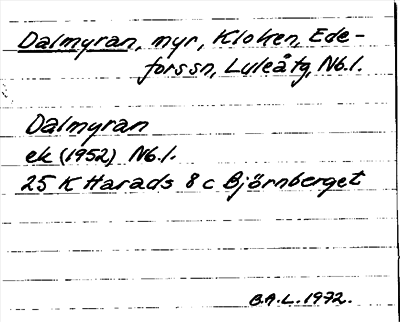 Dalmyran, myr, Kloken, Ede-
forssn, Luleå tg, Nb.l.
Dalmyran
ek (1952) Nb.l.
25 K Harads 8 c Björnberget
B.A.L. 1972.